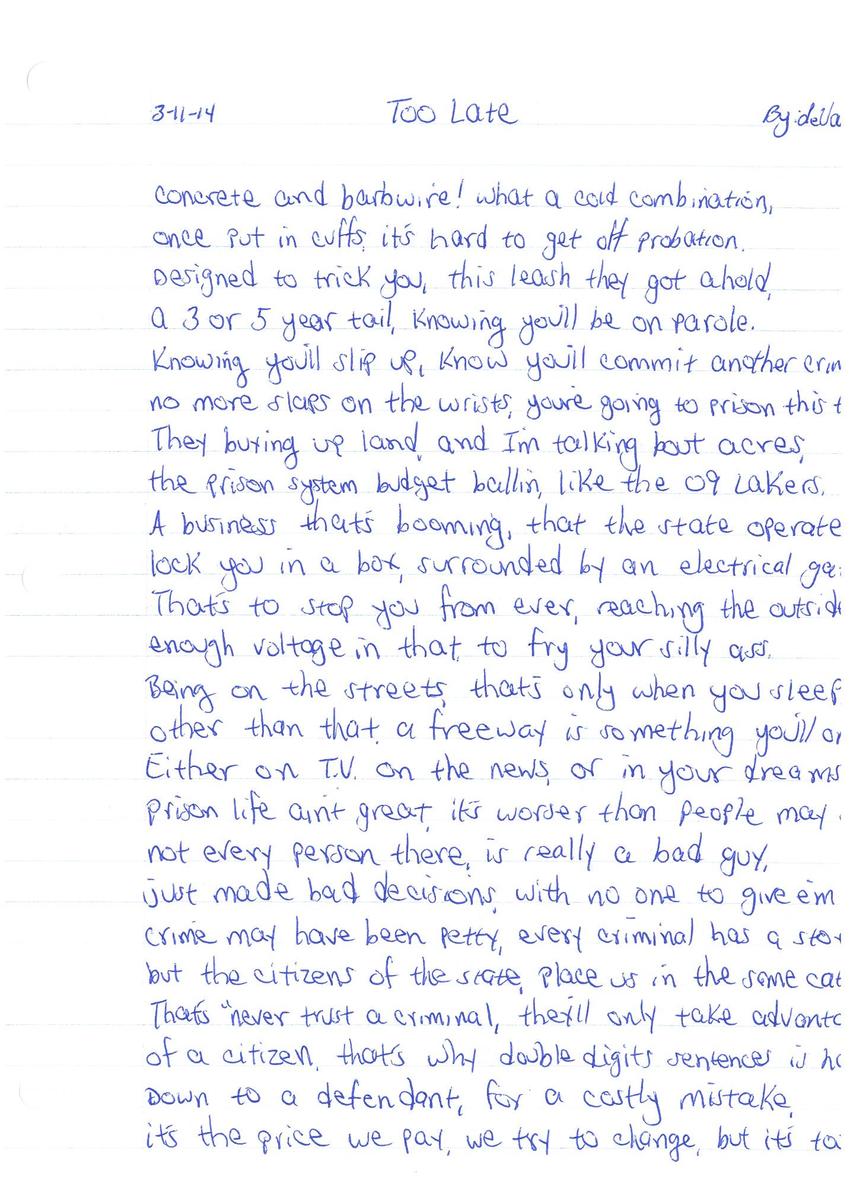 3-11-14 Too Late By: deVa
concrete and barbwire! what a cold combination,
once put in cuffs, it's hard to get off probation.
Designed to trick you, this leash they got ahold,
a 3 or 5 year tail, Knowing you'll be on parole.
Knowing you'll slip up, Know you'll commit another crim
no more slaps on the wrists, you're going to prison this t
They buying up land, and I'm talking bout acres,
the prison system budget ballin, like the 09 Lakers.
A business that's booming, that the state operate
lock you in a box, surrounded by an electrical ga
That's to stop you from ever, reaching the outsid
enough voltage in that, to fry your silly ass.
Being on the streets, that's only when you sleep
other than that, a freeway is something you'll on
Either on T.V. on the news, or in your dreams
prison life ain't great, it's worser than people may
not every person there, is really a bad guy,
just made bad decisions, with no one to give em
crime may have been petty, every criminal has a stor
but the citizens of the state, place us in the same cat
That's "never trust a criminal, they'll only take advanta
of a citizen, that's why double digits sentences is ha
Down to a defendant, for a costly mistake,
it's the price we pay, we try to change, but it's to